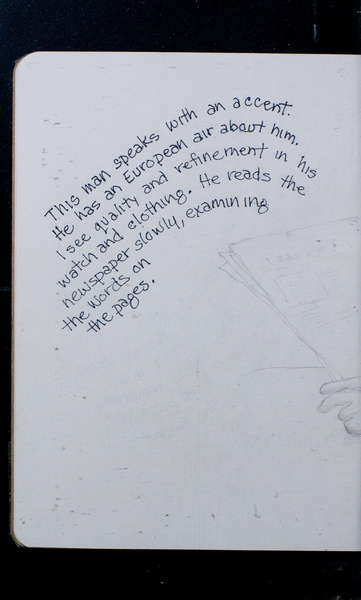 This man speaks with an accent.
He has an European air about him.
I see quality and refinement in his
watch and clothing. He reads the
newspaper slowly, examining
the words on
the pages.